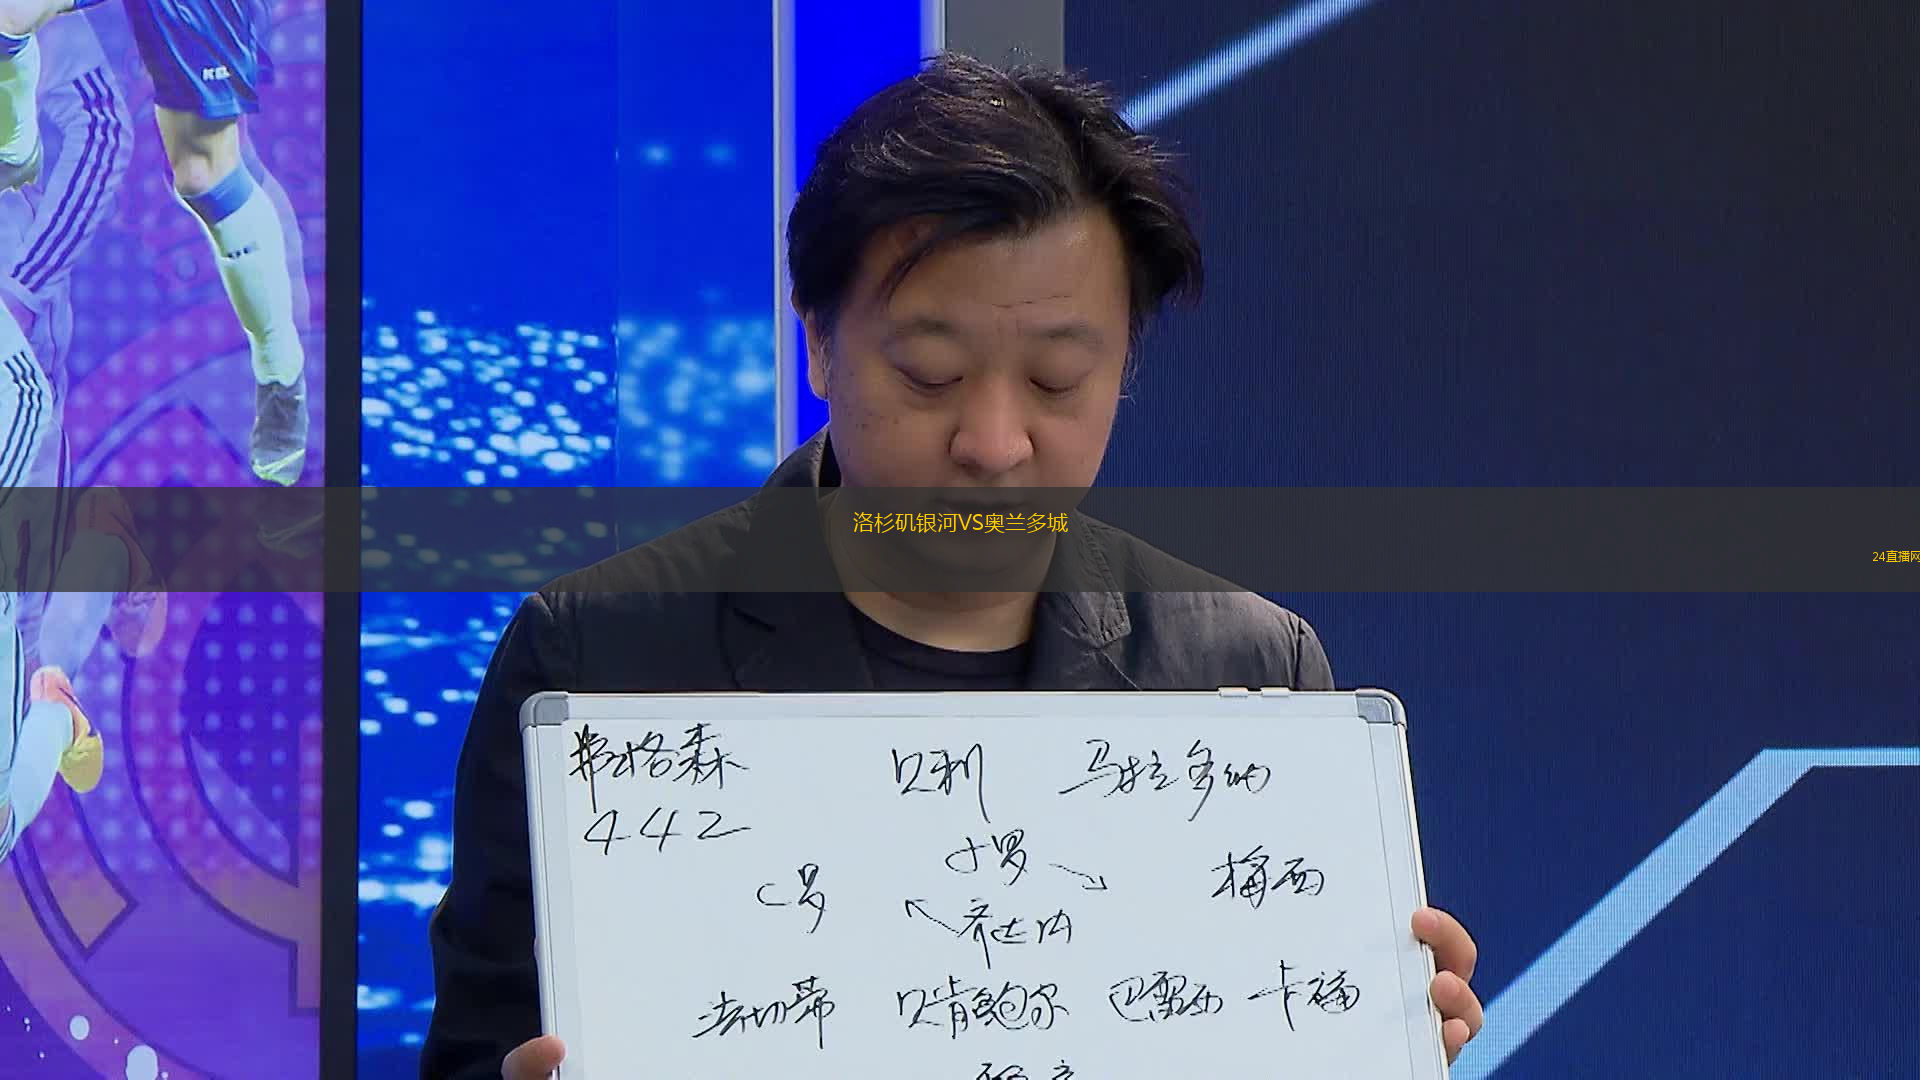 洛杉矶银河VS奥兰多城
24直播网
弗格森 贝利 马拉多纳
442
小罗
C罗 梅西
齐达内
法切蒂 贝肯鲍尔 巴雷西 卡福